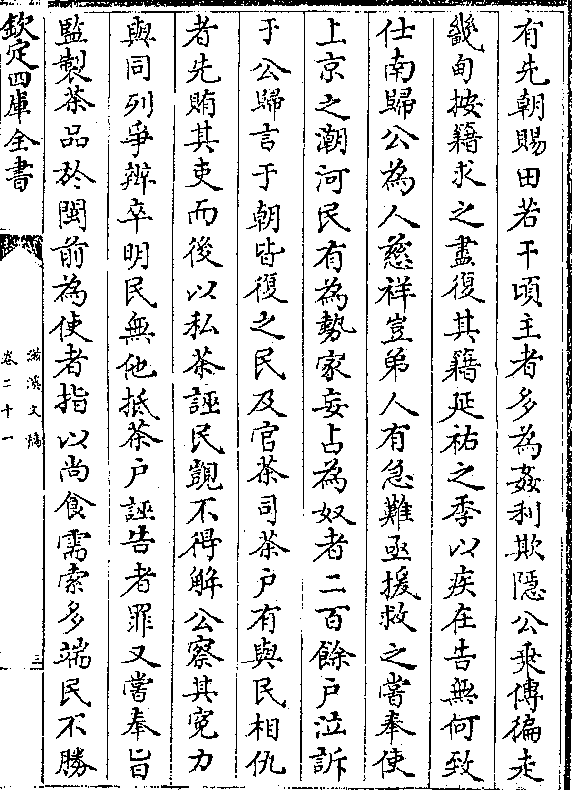 有先朝賜田若干頃主者多為姦利欺隱公乘傳徧走
畿甸按籍求之盡復其籍延祐之季以疾在告無何致
仕南歸公為人慈祥豈弟人有急難亟援救之嘗奉使
上京之潮河民有為勢家妄占為奴者二百餘戶泣訴
于公歸言于朝皆復之民及官茶司茶戶有與民相仇
者先賄其吏而後以私茶誣民覬不得解公察其寃力
與同列爭辨卒明民無他抵茶戶誣告者罪又嘗奉旨
監製茶品於閩前為使者指以尚食需索多端民不勝
欽定四庫全書
卷二十一
三